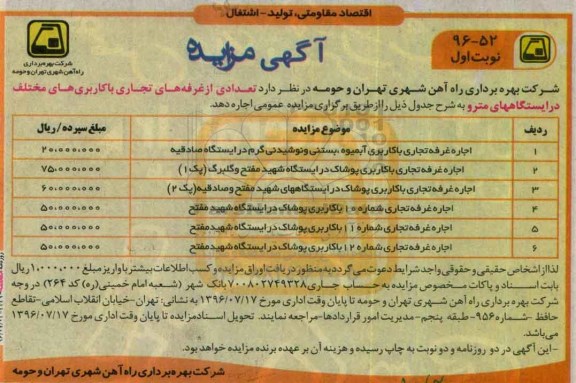 اقتصاد مقاومتی، تولید - اشتغال
۹۶-۵۲
نوبت اول
آگهی مزایده
شرکت بهره برداری
راه آهن شهری تهران و حومه
شرکت بهره برداری راه آهن شهری تهران و حومه در نظر دارد تعدادی از غرفه‌های تجاری با کاربری‌های مختلف
در ایستگاههای مترو به شرح جدول ذیل را از طریق برگزاری مزایده عمومی اجاره دهد.
ردیف موضوع مزایده مبلغ سپرده / ریال
۱ اجاره غرفه تجاری با کاربری آبمیوه، بستنی و نوشیدنی گرم در ایستگاه صادقیه ۲۰،۰۰۰،۰۰۰
۲ اجاره غرفه تجاری با کاربری پوشاک در ایستگاه شهید مفتح و گلبرگ (پک ۱) ۷۵،۰۰۰،۰۰۰
۳ اجاره غرفه تجاری با کاربری پوشاک در ایستگاههای شهید مفتح و صادقیه (پک ۲) ۶۰،۰۰۰،۰۰۰
۴ اجاره غرفه تجاری شماره ۱۰ با کاربری پوشاک در ایستگاه شهید مفتح ۵۰،۰۰۰،۰۰۰
۵ اجاره غرفه تجاری شماره ۱۱ با کاربری پوشاک در ایستگاه شهید مفتح ۵۰،۰۰۰،۰۰۰
۶ اجاره غرفه تجاری شماره ۱۲ با کاربری پوشاک در ایستگاه شهید مفتح ۵۰،۰۰۰،۰۰۰
لذا از اشخاص حقیقی و حقوقی واجد شرایط دعوت می گردد به منظور دریافت اوراق مزایده و کسب اطلاعات بیشتر با واریز مبلغ ۱،۰۰۰،۰۰۰ ریال
بابت اسناد و پاکات مخصوص مزایده به حساب جاری ۷۰۰۸۰۲۷۴۹۳۲۸ بانک شهر (شعبه امام خمینی(ره) کد ۲۶۴) در وجه
شرکت بهره برداری راه آهن شهری تهران و حومه تا پایان وقت اداری مورخ ۱۳۹۶/۰۷/۱۷ به نشانی: تهران - خیابان انقلاب اسلامی - تقاطع
حافظ - شماره ۹۵۶ - طبقه پنجم - مدیریت امور قراردادها - مراجعه نمایند. تحویل اسناد مزایده تا پایان وقت اداری مورخ ۱۳۹۶/۰۷/۱۷
می باشد.
- این آگهی در دو روزنامه و دو نوبت به چاپ رسیده و هزینه آن بر عهده برنده مزایده خواهد بود.
شرکت بهره برداری راه آهن شهری تهران و حومه